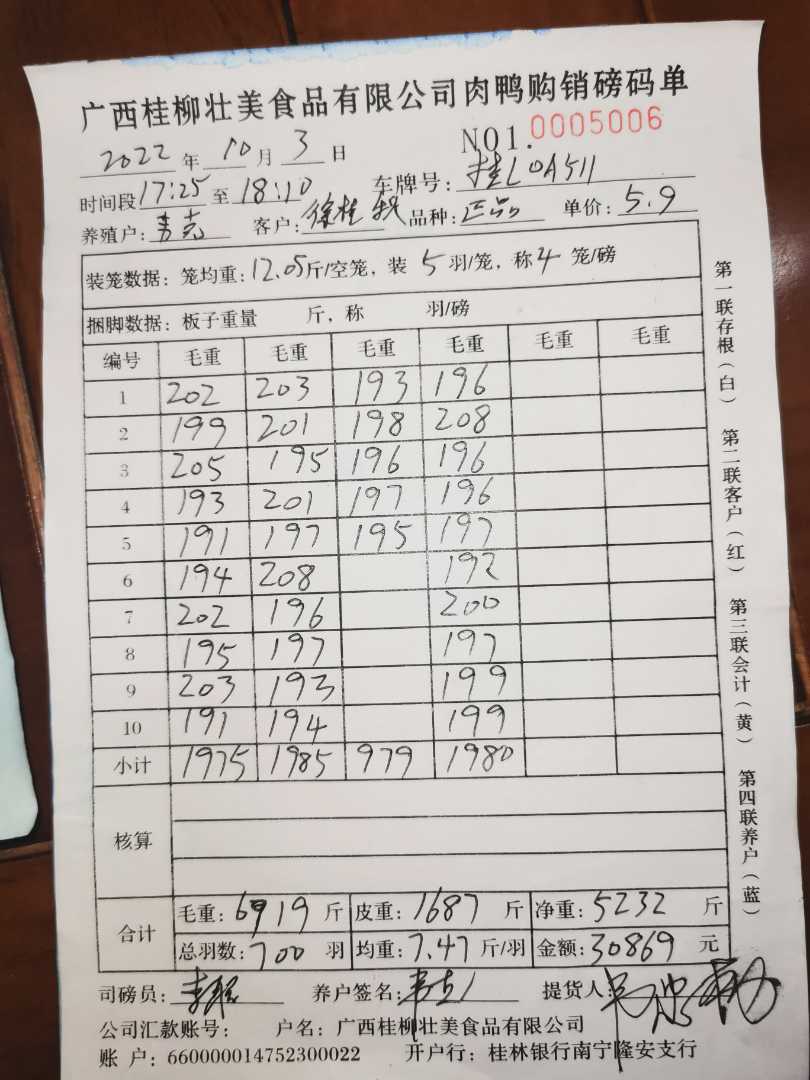 广西桂柳壮美食品有限公司肉鸭购销磅码单
2022年10月3日 NO1.0005006
时间段17:25至18:10 车牌号:桂L0A511
养殖户: 客户:徐桂 品种:正品 单价:5.9
装笼数据:笼均重:12.05斤/空笼,装5羽/笼,称4笼/磅
捆脚数据:板子重量 斤,称 羽/磅
编号 毛重 毛重 毛重 毛重 毛重 毛重
1 202 203 193 196
2 199 201 198 208
3 205 195 196 196
4 193 201 197 196
5 191 197 195 197
6 194 208 192
7 202 196 200
8 195 197 197
9 203 193 199
10 191 194 199
小计 1975 1985 979 1980
核算
合计 毛重:6919斤 皮重:1687斤 净重:5232斤
总羽数:700羽 均重:7.47斤/羽 金额:30869元
司磅员: 养户签名: 提货人:
公司汇款账号: 户名:广西桂柳壮美食品有限公司
账 户:660000014752300022 开户行:桂林银行南宁隆安支行
第一联存根(白) 第二联客户(红) 第三联会计(黄) 第四联养户(蓝)